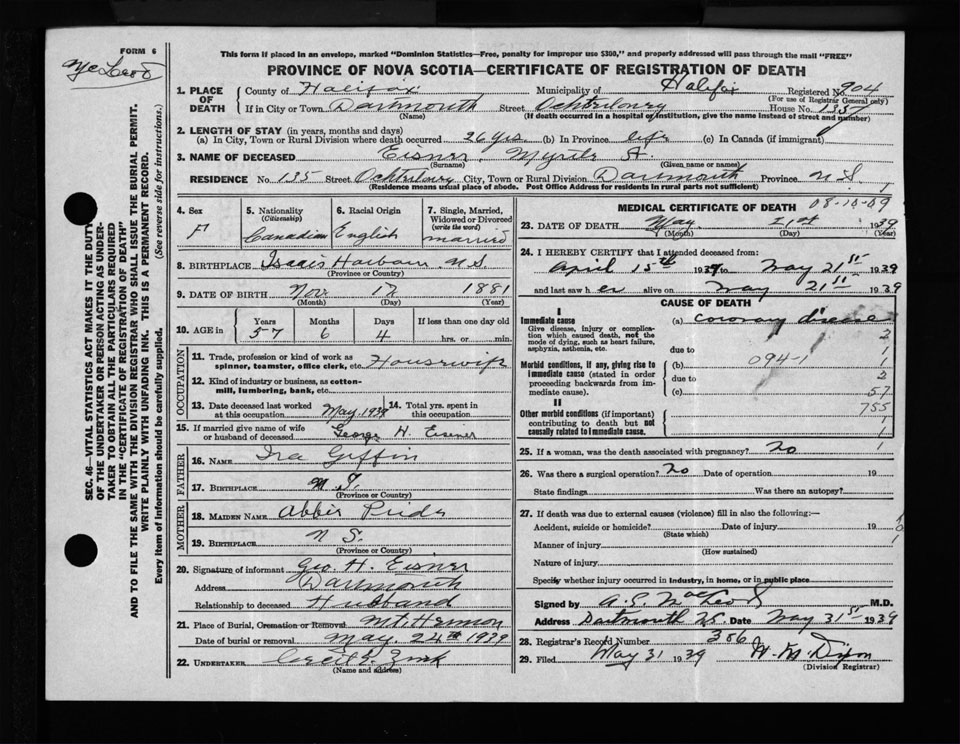 FORM 6
McLeod
This form if placed in an envelope, marked "Dominion Statistics—Free, penalty for improper use $300," and properly addressed will pass through the mail "FREE"
PROVINCE OF NOVA SCOTIA—CERTIFICATE OF REGISTRATION OF DEATH
1. PLACE OF DEATH { County of Halifax Municipality of Halifax Registered No. 904
(For use of Registrar General only)
If in City or Town Dartmouth Street Ochterloney House No. 135
(Name) (If death occurred in a hospital or institution, give the name instead of street and number)
2. LENGTH OF STAY (in years, months and days)
(a) In City, Town or Rural Division where death occurred 26 yrs (b) In Province life (c) In Canada (if immigrant)
3. NAME OF DECEASED Eisner, Myrtle A.
(Surname) (Given name or names)
RESIDENCE No. 135 Street Ochterloney City, Town or Rural Division Dartmouth Province N.S.
(Residence means usual place of abode. Post Office Address for residents in rural parts not sufficient)
4. Sex F
5. Nationality (Citizenship) Canadian
6. Racial Origin English
7. Single, Married, Widowed or Divorced (write the word) married
8. BIRTHPLACE Isaacs Harbour N.S.
(Province or Country)
9. DATE OF BIRTH Nov. 17 1881
(Month) (Day) (Year)
10. AGE in { Years 57 Months 6 Days 4 If less than one day old
hrs. or min.
OCCUPATION
11. Trade, profession or kind of work as spinner, teamster, office clerk, etc. Housewife
12. Kind of industry or business, as cotton-mill, lumbering, bank, etc.
13. Date deceased last worked at this occupation May, 1939 14. Total yrs. spent in this occupation
15. If married give name of wife or husband of deceased George H. Eisner
FATHER
16. NAME Ira Giffin
17. BIRTHPLACE N.S.
(Province or Country)
MOTHER
18. MAIDEN NAME Abbie Pride
19. BIRTHPLACE N S.
(Province or Country)
20. Signature of informant Geo. H. Eisner
Address Dartmouth
Relationship to deceased Husband
21. Place of Burial, Cremation or Removal Mt. Hermon
Date of burial or removal May. 24th 1939
22. UNDERTAKER
(Name and address)
MEDICAL CERTIFICATE OF DEATH
23. DATE OF DEATH May 21st 1939
(Month) (Day) (Year)
24. I HEREBY CERTIFY that I attended deceased from:
April 15th 1939 to May 21st 1939
and last saw her alive on May 21st 1939
CAUSE OF DEATH
I
Immediate cause
Give disease, injury or complication which caused death, not the mode of dying, such as heart failure, asphyxia, asthenia, etc.
(a) coronary disease
due to
Morbid conditions, if any, giving rise to immediate cause (stated in order proceeding backwards from immediate cause).
(b) 094-1
due to
(c)
57
755
II
Other morbid conditions (if important) contributing to death but not causally related to immediate cause.
25. If a woman, was the death associated with pregnancy? No
26. Was there a surgical operation? No Date of operation 19
State findings Was there an autopsy?
27. If death was due to external causes (violence) fill in also the following:—
Accident, suicide or homicide? Date of injury 19
(State which)
Manner of injury
(How sustained)
Nature of injury
Specify whether injury occurred in industry, in home, or in public place
Signed by M.D.
Address Dartmouth N.S. Date May 31st 1939
28. Registrar's Record Number 386
29. Filed May 31 1939 Dixon
(Division Registrar)
SEC. 46—VITAL STATISTICS ACT MAKES IT THE DUTY
OF THE UNDERTAKER OR PERSON ACTING AS UNDER-
TAKER TO OBTAIN ALL THE PARTICULARS REQUIRED
IN THE "CERTIFICATE OF REGISTRATION OF DEATH"
AND TO FILE THE SAME WITH THE DIVISION REGISTRAR WHO SHALL ISSUE THE BURIAL PERMIT.
WRITE PLAINLY WITH UNFADING INK. THIS IS A PERMANENT RECORD.
Every item of information should be carefully supplied. (See reverse side for instructions.)